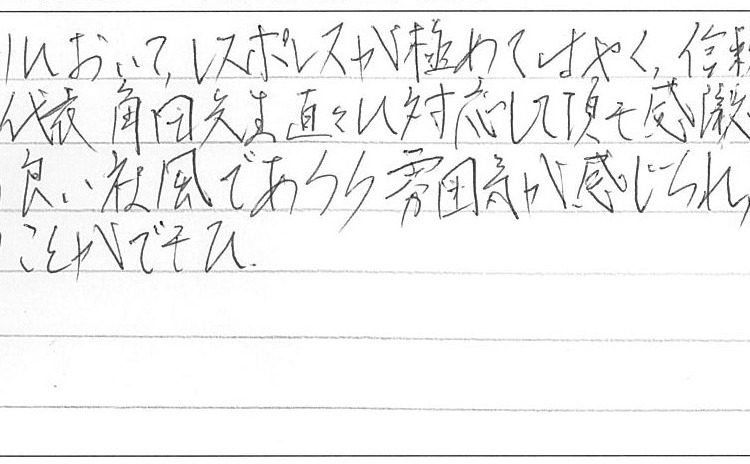 において、レスポンスが極めてはやく、信頼
代表 角田先生直々に対応して頂き感激
良い社風であろう雰囲気が感じられ、
ことができた.